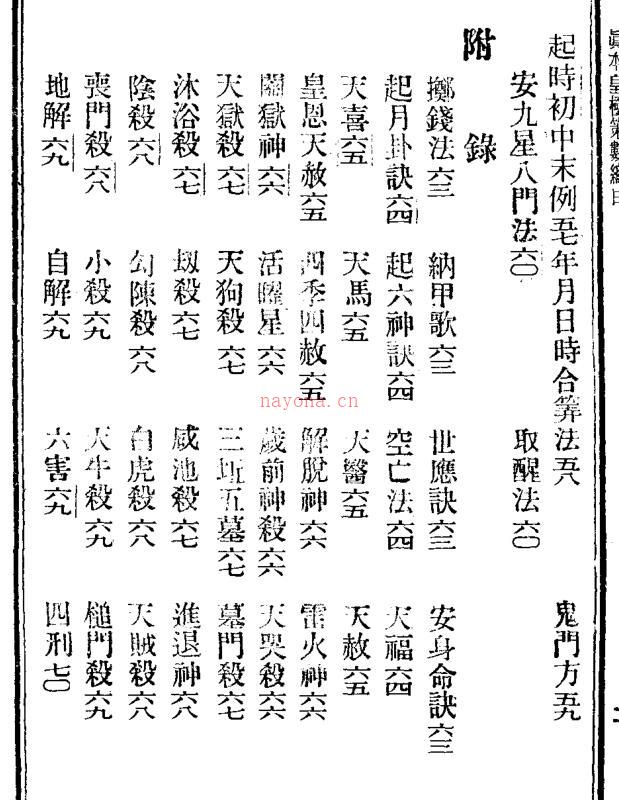 起時初中末例五七 年月日時合筭法五八 鬼門方五九
安九星八門法六〇 取醒法六〇
附錄
擲錢法六三 納甲歌六三 世應訣六三 安身命訣六三
起月卦訣六四 起六神訣六四 空亡法六四 天福六四
天喜六五 天馬六五 天醫六五 天赦六五
皇恩天赦六五 四季四赦六五 解脫神六六 雷火神六六
關獄神六六 活曜星六六 歲前神殺六六 天哭殺六六
天獄殺六七 天狗殺六七 三坵五墓六七 墓門殺六七
沐浴殺六七 刧殺六七 咸池殺六七 進退神六八
陰殺六八 勾陳殺六八 白虎殺六八 天賊殺六八
喪門殺六八 小殺六九 大牛殺六九 槌門殺六九
地解六九 自解六九 六害六九 四刑七〇
nayona.cn